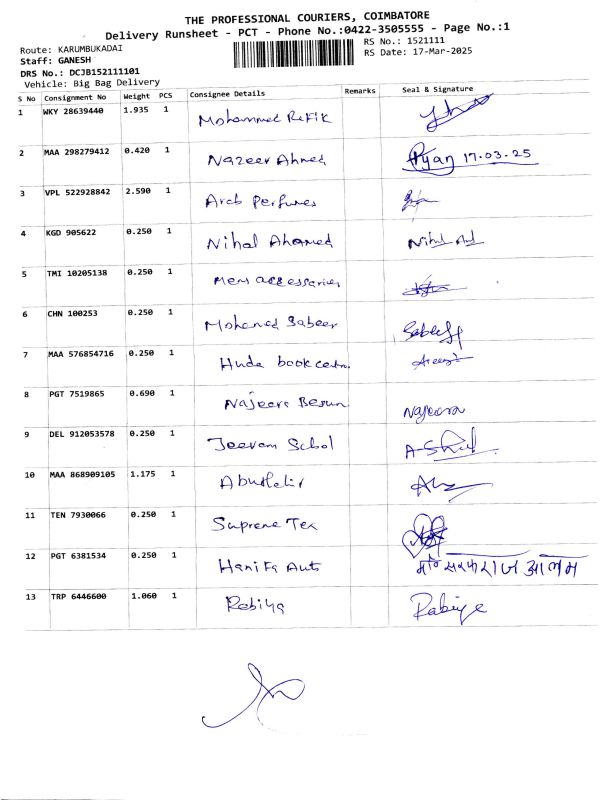 THE PROFESSIONAL COURIERS, COIMBATORE
Delivery Runsheet - PCT - Phone No.:0422-3505555 - Page No.:1
Route: KARUMBUKADAI
RS No.: 1521111
Staff: GANESH
RS Date: 17-Mar-2025
DRS No.: DCJB152111101
Vehicle: Big Bag Delivery
S No Consignment No Weight PCS Consignee Details Remarks Seal & Signature
1 WKY 28639440 1.935 1 Mohammed Refik
2 MAA 298279412 0.420 1 Nazeer Ahmed Ryan 17.03.25
3 VPL 522928842 2.590 1 Arab Perfumes
4 KGD 905622 0.250 1 Nihal Ahamed
5 TMI 10205138 0.250 1 Men accessories
6 CHN 100253 0.250 1 Mohamed Sabeer
7 MAA 576854716 0.250 1 Huda book
8 PGT 7519865 0.690 1 Najeera Najeera
9 DEL 912053578 0.250 1 Jeevam
10 MAA 868909105 1.175 1
11 TEN 7930066 0.250 1 Supreme Tex
12 PGT 6381534 0.250 1 Hanifa Auto मो० सरफराज आलम
13 TRP 6446600 1.060 1 Rabiya Rabiye